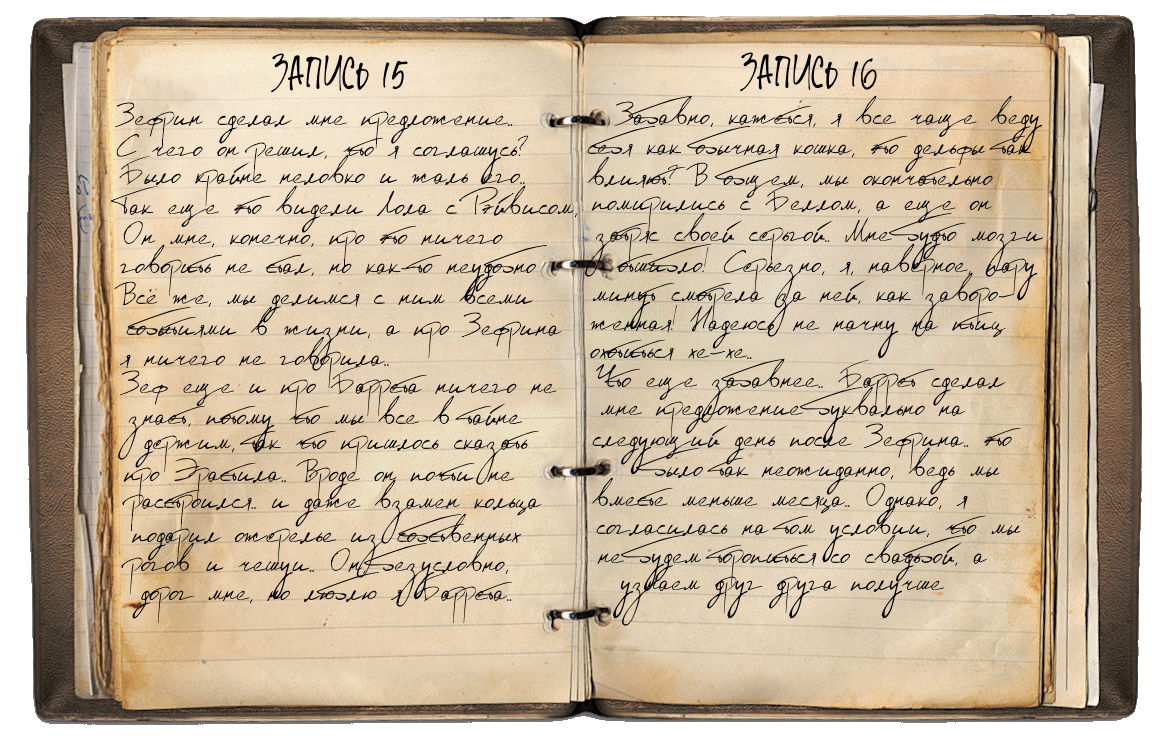 ЗАПИСЬ 15
Зефрин сделал мне предложение..
С чего он решил, что я соглашусь?
Было крайне неловко и жаль его..
Так еще это видели Лола с Рэйвисом,
Он мне, конечно, про это ничего
говорить не стал, но как-то неудобно
Всё же, мы делимся с ним всеми
событиями в жизни, а про Зефрина
я ничего не говорила..
Зеф еще и про Баррета ничего не
знает, потому что мы все в тайне
держим, так что пришлось сказать
про Эрастила.. Вроде он почти не
расстроился.. и даже взамен кольца
подарил ожерелье из собственных
рогов и чешуи.. Он безусловно,
дорог мне, но люблю я Баррета..
ЗАПИСЬ 16
Забавно, кажется, я все чаще веду
себя как обычная кошка, это дельфы так
влияют? В общем, мы окончательно
помирились с Беллом, а еще он
затряс своей серьгой.. Мне будто мозги
отшибло! Серьезно, я, наверное, пару
минут смотрела за ней, как заворо-
женная! Надеюсь не начну на птиц
охотиться хе-хе..
Что еще забавнее.. Баррет сделал
мне предложение буквально на
следующий день после Зефрина.. это
было так неожиданно, ведь мы
вместе меньше месяца.. Однако, я
согласилась на том условии, что мы
не будем торопиться со свадьбой, а
узнаем друг друга получше